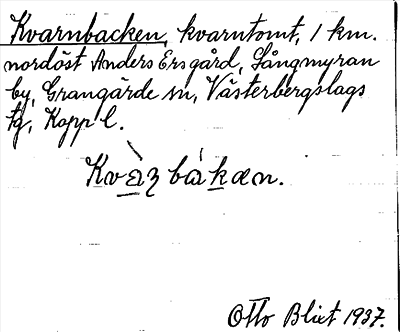 Kvarnbacken, kvarntomt, 1 km.
nordöst Anders Ersgård, Sångmyran
by, Grangärde sn, Västerbergslags
tg, Kopp l.
Otto Blixt 1937.